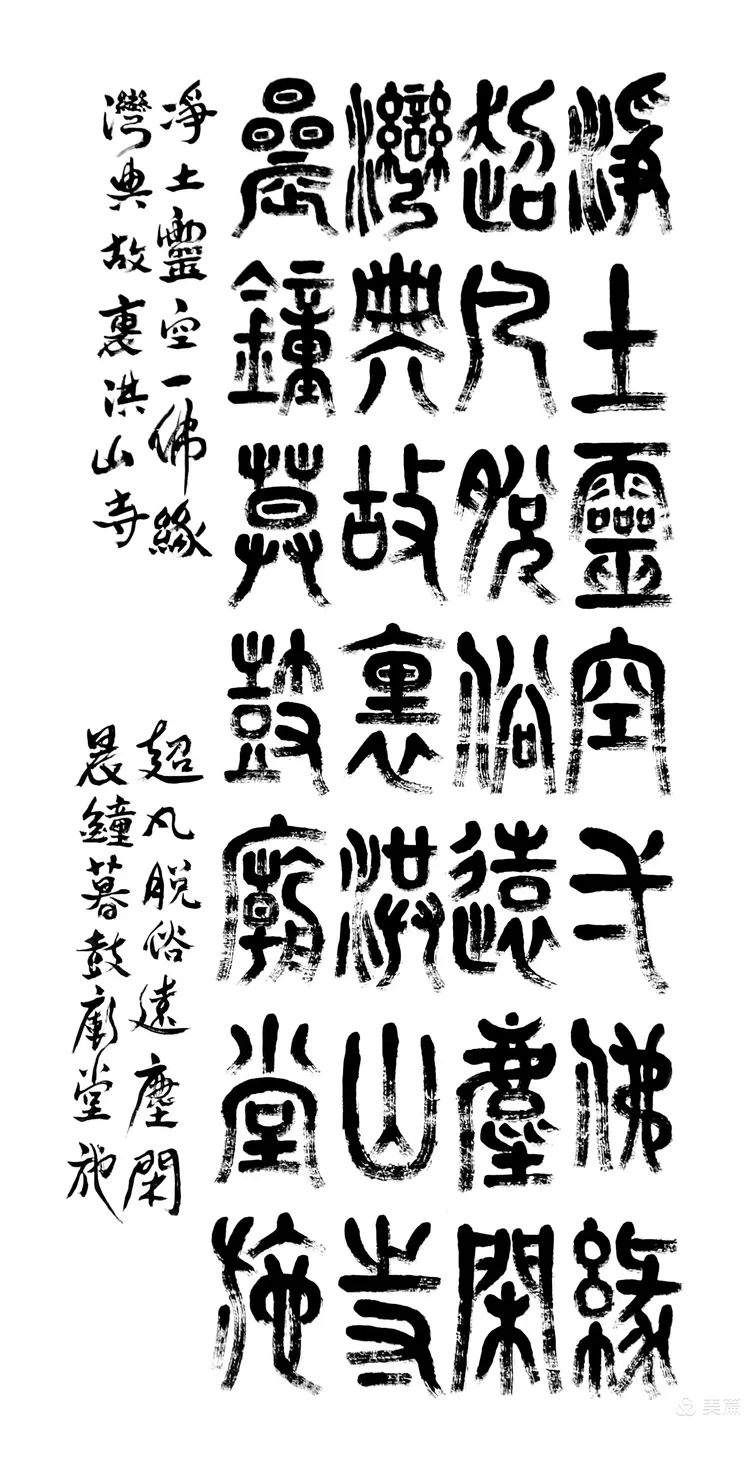 淨土靈空千佛緣
超凡脫俗遠塵閑
灣典故裏洪山寺
晨鐘莫鼓廟堂施
淨土靈空一佛緣
灣典故裏洪山寺
超凡脫俗遠塵閑
晨鐘暮鼓廟堂施
美篇